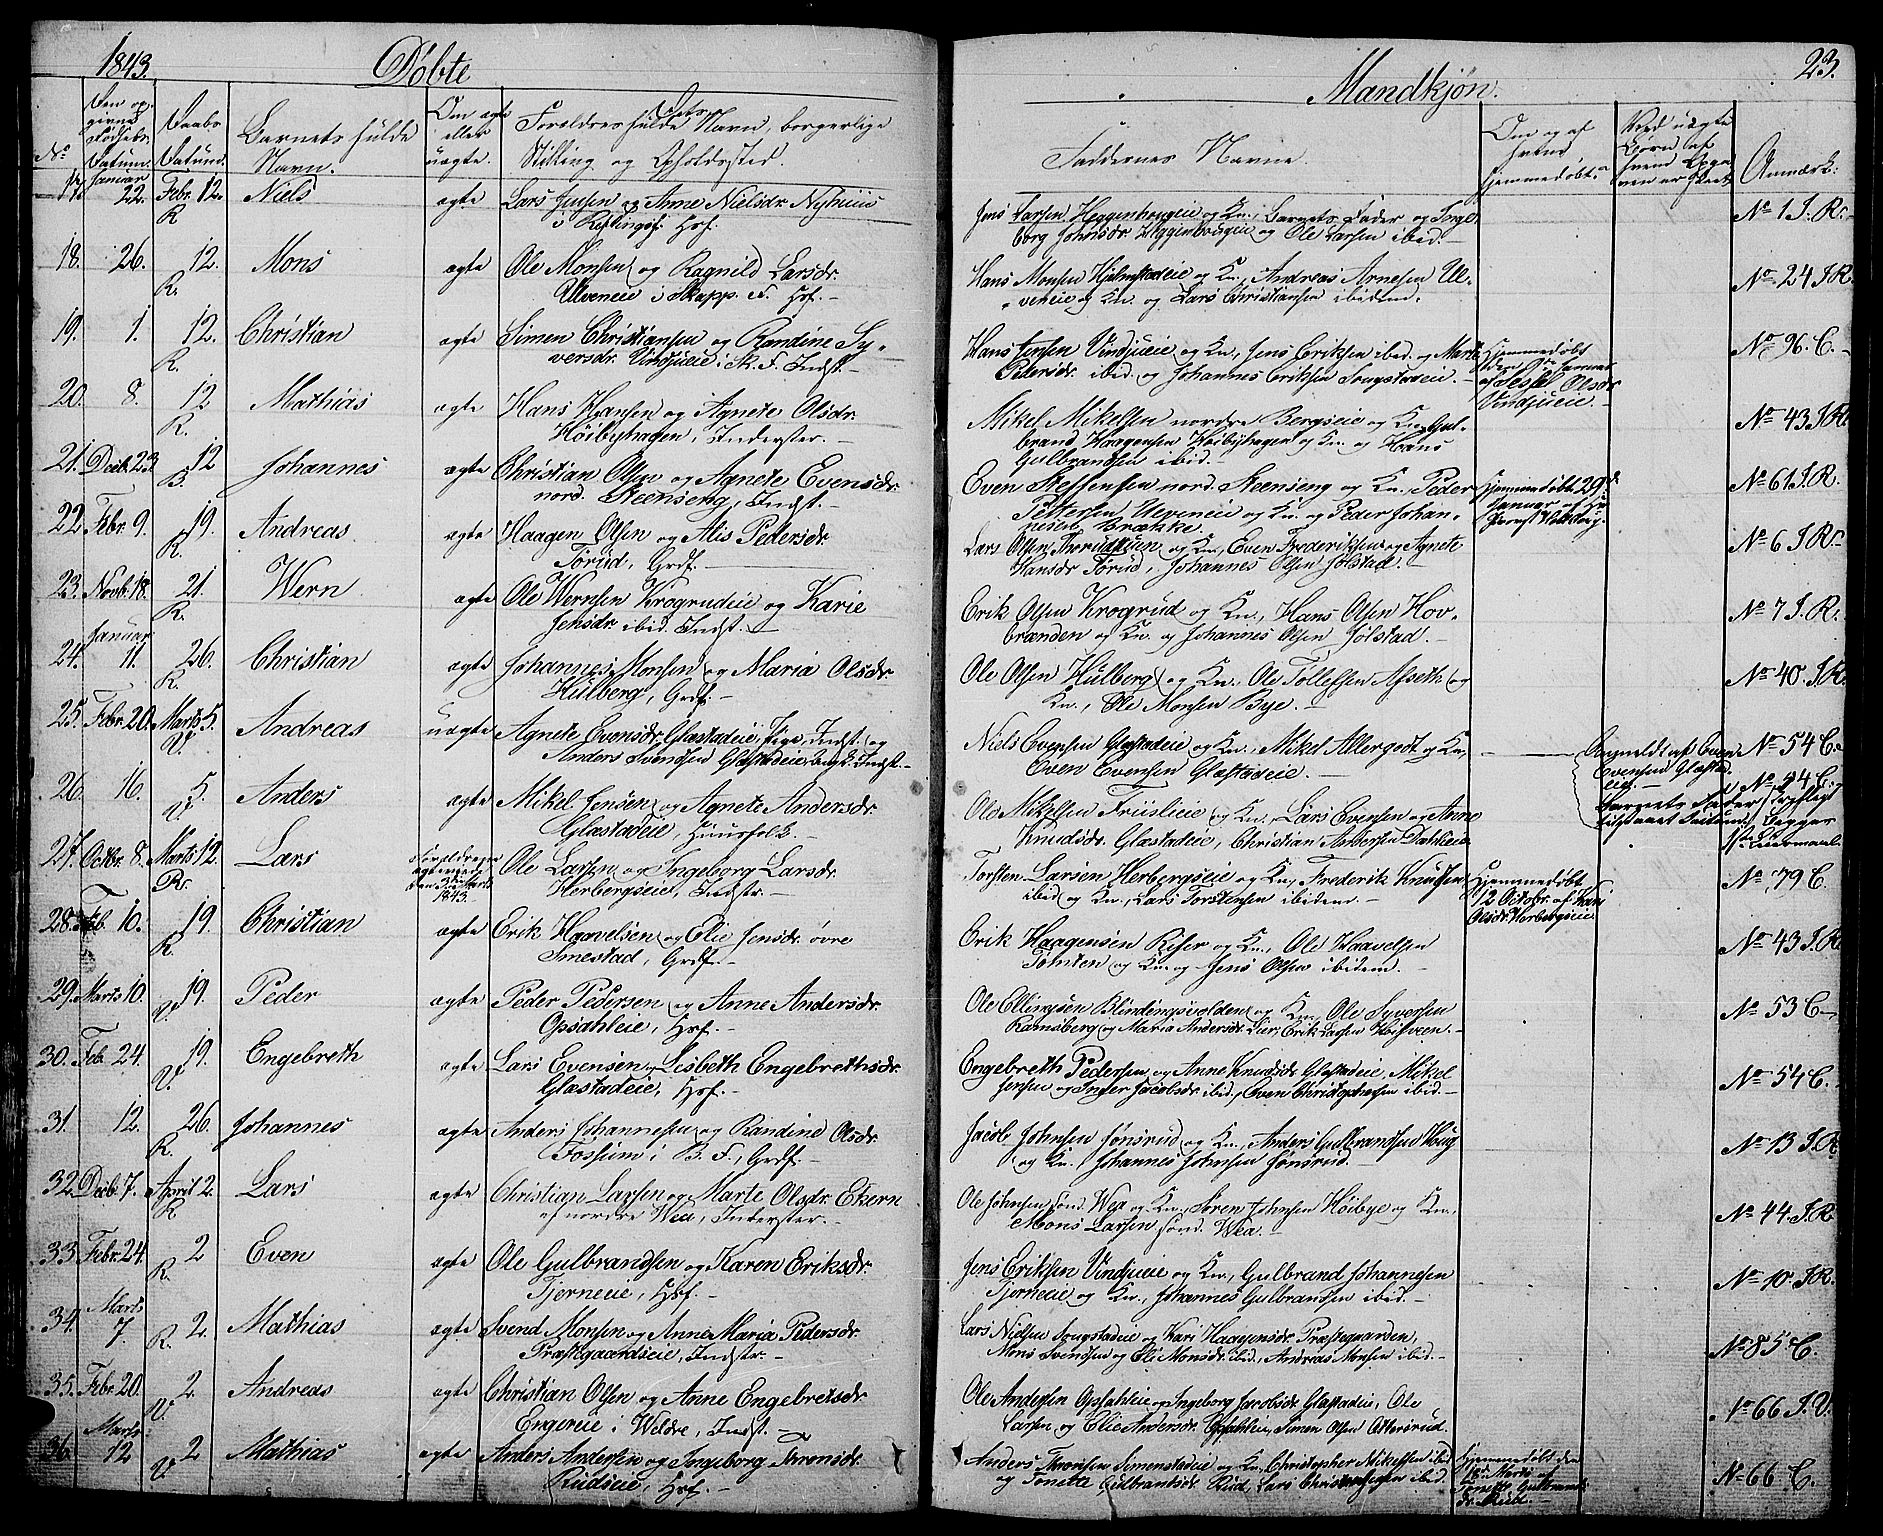 1843. Døbte
No Den opgivne Fødsels Datum. Daabs Datum. Barnets fulde Navn. Om ægte eller uægte. Forældres fulde Navn, borgerlige Stilling og Opholdssted.
17. Januar 22. Febr. 12. R. Niels ægte Lars Jensen og Anne Nielsdr. Nyhuus
Hsf.
18. 26. 12. R. Mons ægte Ole Monsen og Ragnild Larsdr.
Ulveneie i Skapp. F. Hsf. –
19. 1. 12. R. Christian ægte Simen Christiansen og Randine Sy-
versdr. Vindjueie i R. F. Indst. –
20. 8. 12 R. Mathias ægte Hans Hansen og Agnete Olsdr.
Høibyhagen, Inderster. –
21. Decbr. 23 12 B. Johannes ægte Christian Olsen og Agnete Evensdr.
nord. Steenseng, Indst. –
22. Febr. 9. 19. R. Andreas ægte Haagen Olsen og Alis Pedersdr.
Torud, Grdf. –
23. Novb. 18. 21. R. Wern ægte Ole Wernsen Krogrudeie og Karie
Jensdr. ibid. Indst. –
24. Januar 11. 26. R. Christian ægte Johannes Monsen og Maria Olsdr.
Hulberg, Grdf. –
25. Febr. 20. Marts 5. V. Andreas uægte Agnete Evensdr. Glæstadeie, Pige, Indst. og
Anders Svendsen Glæstadeie, Indst. –
26. 16. 5. V. Anders ægte Mikel Jensen og Agnete Andersdr.
Glæstadeie, Huusfolk. –
27. Octbr. 8. Marts 12. R. Lars Forældrene ægteviede 1843. Ole Larsen og Ingeborg Larsdr.
Herbergseie, Indstr. –
28. Feb. 10. 19. R. Christian ægte Erik Haavelsen og Elie Jensdr. øvre
Smestad, Grdf. –
29. Marts 10. 19. V. Peder ægte Peder Pedersen og Anne Andersdr.
Opsahleie, Hsf. –
30. Feb. 24. 19. V. Engebreth ægte Lars Evensen og Lisbeth Engebrethsdr.
Glæstadeie, Hsf. –
31. 12. 26. R. Johannes ægte Anders Johannesen og Randine Olsdr.
Fossum i B. F., Grdf. –
32. Decb. 7. April 2. R. Lars ægte Christian Larsen og Marte Olsdr. Ekern
af nordre Wea, Inderster. –
33. Febr. 24. 2 R. Even ægte Ole Gulbrandsen og Karen Eriksdr.
Tjerneie, Hsf. –
34. Marts 7 2. R. Mathias ægte Svend Monsen og Anne Maria Pedersdr.
Præstegaardseie, Indstr. –
35. Febr. 20. 2. V. Andreas ægte Christian Olsen og Anne Engebretsdr.
Engereie i Weldre, Indst. –
36. Marts 12 2 V. Mathias ægte Anders Andersen og Ingeborg Thronsdr.
Rudseie, Hsf. –
Mandkjøn. 23.
Faddernes Navne. Om og af hvem hjemmedøbt. Ved uægte Børn af hvem Opgaven er skeet Anmærk:
Jens Larsen Heggenhougeie og Kn., Barnets Fader og Inge-
borg Johnsdr. Heggenhougeie og Ole Larsen ibid. – No 1 J. R. –
Hans Monsen Hjelmstadeie og Kn., Andreas Arnesen Ul-
veneie og Kn. og Lars Christiansen ibidem. No 24 J. R.
Hans Jensen Vindjueie og Kn., Jens Eriksen ibid. og Marte
Pedersdr. ibid. og Johannes Eriksen Sougstadeie. – Hjemmedøbt Januar af Sessel Olsdr. Vindjueie. – No 96. C. –
Mikel Mikelsen nordre Bergseie og Kn., Gul-
brand Haagensen Høibyhagen og Kn. og Hans
Gulbrandsen ibid. – No 43 J. R.
Even Steffensen nord. Steenseng og Kn. Peder
Pettersen Ulveneie og Kn. og Peder Johan-
nesen Brække. Hjemmedøbt 29d Januar af No 61 J. R.
Lars Olsen Thorudstuen og Kn., Even Frederiksen og Agnete
Hansdr. Torud, Johannes Olsen Jolstad. – No 6 J. R. –
Erik Olsen Krogrud og Kn., Hans Olsen Hov-
branden og Kn. og Johannes Olsen Jølstad. – No 7 J. R.
Ole Olsen Hulberg og Kn., Ole Tollefsen Asseth og
Kn., Ole Monsen Bye. – No 40. J. R.
Niels Evensen Glæstadeie og Kn., Mikel Allergodt og Kn.,
Even Evensen Glæstadeie. – Anmeldt af Even Evensen Glæstadeie. – Barnets Fader No 54 C.
Ole Mikelsen Friislieie og Kn., Lars Evensen og Anne
Knudsdr. Glæstadeie, Christian Andersen Dahleie No 44 C.
Torsten Larsen Herbergseie og Kn., Frederik Knudsen
ibid. og Kn., Lars Torstensen ibidem. – Hjemmedøbt 12 Octobr. af Kari Olsdr. Herbergseie No 79 C.
Erik Haagensen Riser og Kn., Ole Haavelsen
Tomten og Kn. og Jens Olsen ibidem. – No 43 J. R.
Ole Ellingsen Blindingsvolden og Kn., Ole Syversen
Ramsberg og Maria Andersdr. Lier, Erik Larsen Høisveen. – No 53 C. –
Engebreth Pedersen og Anne Knudsdr. Glæstadeie, Mikel
Jensen og Inger Jacobsdr. ibid., Even Christophersen ibid. – No 54 C.
Jacob Johnsen Jønsrud og Kn., Anders Gulbrandsen Houg
og Kn., Johannes Johnsen Jønsrud. – No 13 J. R
Ole Johnsen sønd. Wea og Kn., Søren Johnsen Høibye og Kn.,
Mons Larsen, sønd. Wea. – No 44. J. R
Jens Eriksen Vindjueie og Kn., Gulbrand Johannesen
Tjerneie og Kn., Johannes Gulbransen ibid. – No 10 J. R.
Lars Nielsen Sougstadeie og Kari Haagensdr. Præstegaarden,
Mons Svendsen og Eli Monsdr. ibid., Andreas Monsen ibid. – No 85 C.
Ole Andersen Opsahleie og Ingeborg Jacobsdr. Glæstadeie, Ole
Larsen og Elie Andersdr. Opsahleie, Simen Olsen Ottersrud. No 66 J. V.
Anders Thronsen Simenstadeie og Kn., Christopher Mikelsen ibid
og Tonette Gulbrandsdr. Rud, Lars Christophersen ibid. Hjemmedøbt den 18de Marts af Tonette Gulbrandsdr. Rud. – No 66 C.